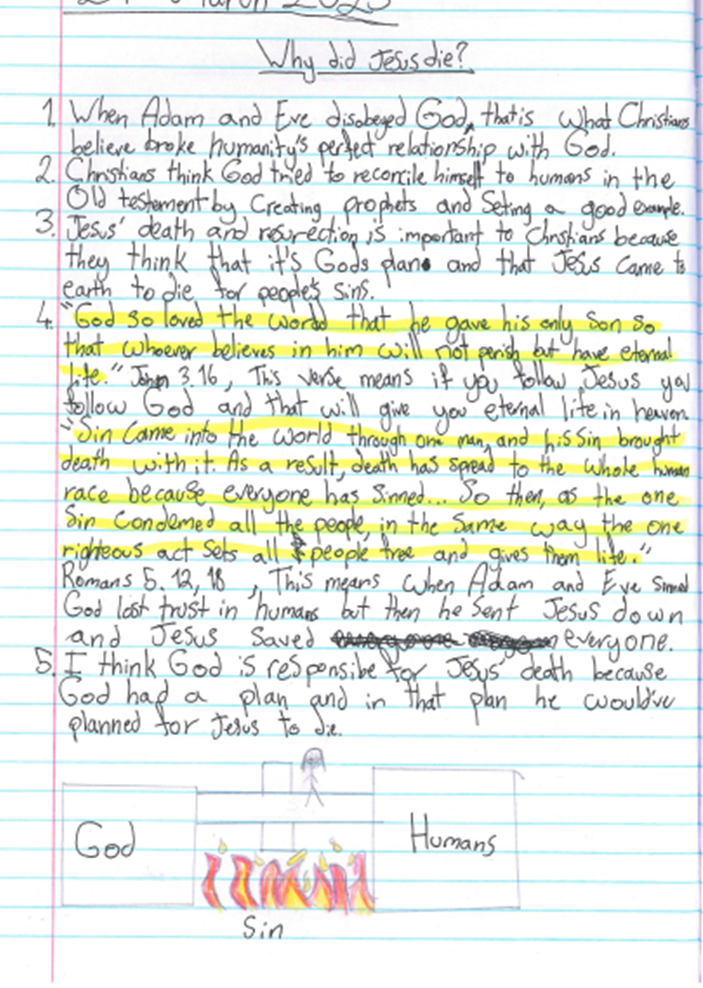 March 2023
Why did Jesus die?
1. When Adam and Eve disobeyed God, that is what Christians
believe broke humanity's perfect relationship with God.
2. Christians think God tried to reconcile himself to humans in the
Old testement by Creating prophets and Seting a good example.
3. Jesus' death and resurection is important to Christians because
they think that it's Gods plan and that Jesus came to
earth to die for people's sins.
4. "God so loved the world that he gave his only Son so
that whoever believes in him will not perish but have eternal
life." John 3.16, This verse means if you follow Jesus you
follow God and that will give you eternal life in heaven
"Sin came into the world through one man, and his Sin brought
death with it. As a result, death has spread to the whole human
race because everyone has Sinned... So then, as the one
Sin Condemed all the people, in the Same way the one
righteous act Sets all people free and gives them life."
Romans 5. 12, 18, This means when Adam and Eve Sinned
God lost trust in humans but then he Sent Jesus down
and Jesus Saved everyone.
5. I think God is responsibe for Jesus' death because
God had a plan and in that plan he would've
planned for Jesus to die.
God Humans
Sin